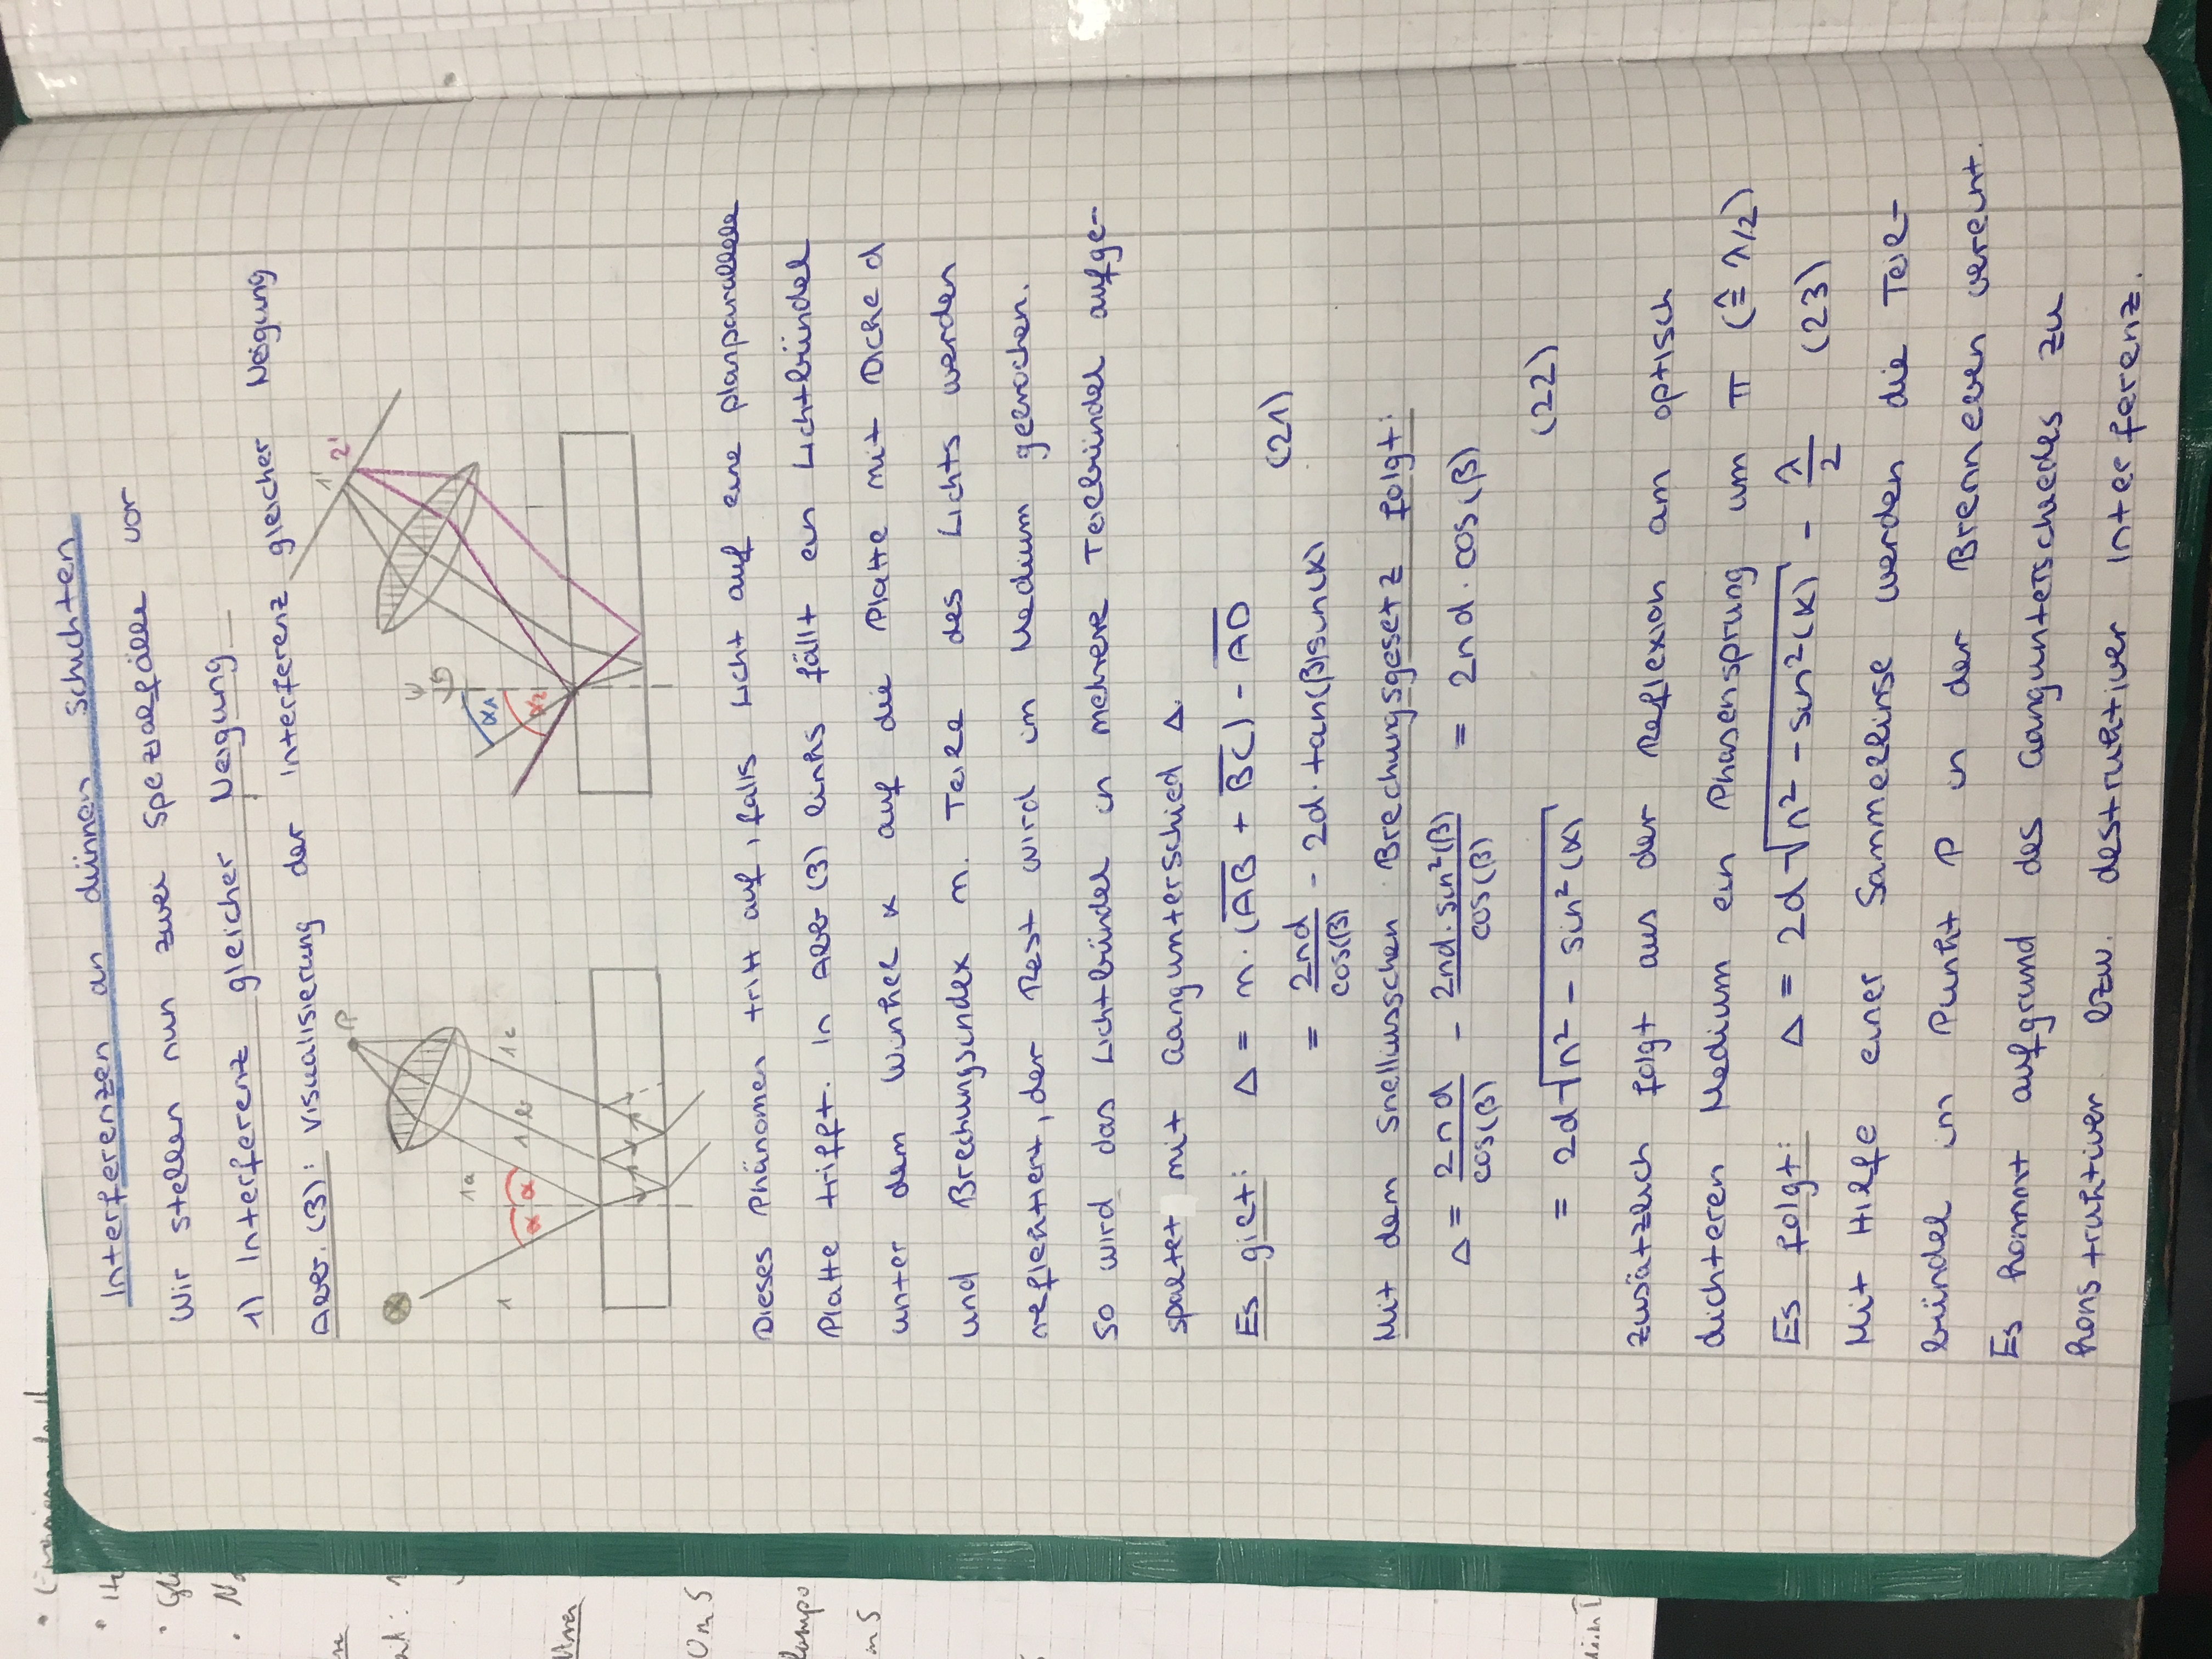 Interferenzen an dünnen Schichten
Wir stellen nun zwei Spezialfälle vor
1) Interferenz gleicher Neigung
Abb. (3): Visualisierung der Interferenz gleicher Neigung
P
1
1a
1b
1c
α α
1' 2'
α1
α2
Dieses Phänomen tritt auf, falls Licht auf eine planparallele
Platte trifft. In Abb (3) links fällt ein Lichtbündel
unter dem Winkel α auf die Platte mit Dicke d
und Brechungsindex n. Teile des Lichts werden
reflektiert, der Rest wird im Medium gebrochen.
So wird das Lichtbündel in mehrere Teilbündel aufge-
spaltet mit Gangunterschied Δ.
Es gilt: Δ = n·(A̅B̅ + B̅C̅) - A̅D̅
= 2nd/cos(β) - 2d·tan(β)sin(α) (21)
Mit dem Snelliusschen Brechungsgesetz folgt:
Δ = 2nd/cos(β) - 2nd·sin²(β)/cos(β) = 2nd·cos(β)
= 2d√(n² - sin²(α)) (22)
Zusätzlich folgt aus der Reflexion am optisch
dichteren Medium ein Phasensprung um π (≙ λ/2)
Es folgt: Δ = 2d√(n² - sin²(α)) - λ/2 (23)
Mit Hilfe einer Sammellinse werden die Teil-
bündel im Punkt P in der Brenneben vereint.
Es kommt aufgrund des Gangunterschiedes zu
konstruktiver bzw. destruktiver Interferenz.